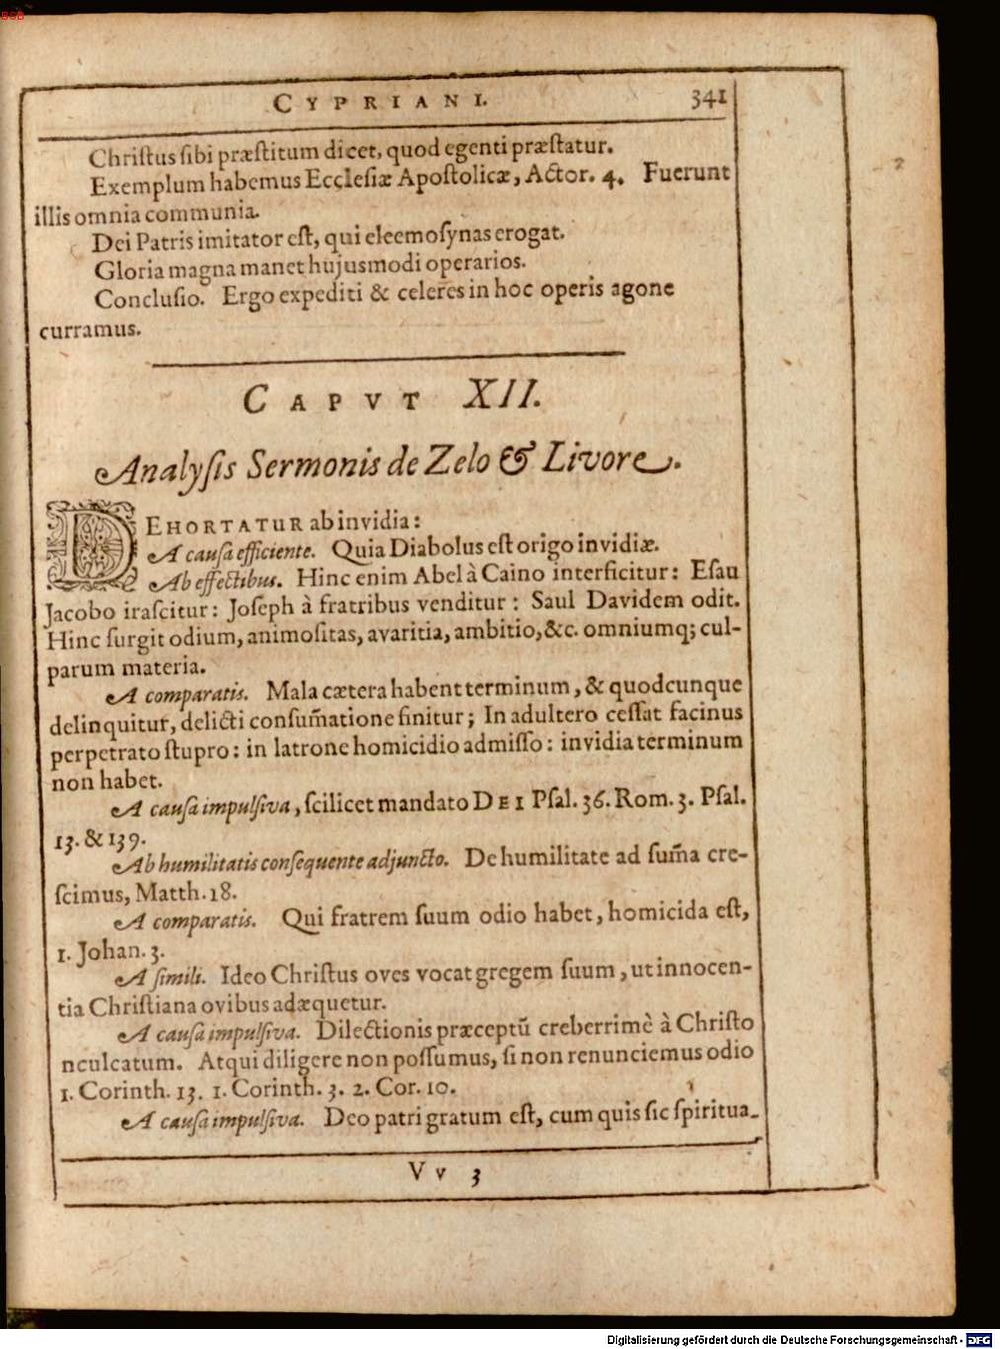 BSB
CYPRIANI. 341
Chriſtus ſibi præſtitum dicet, quod egenti præſtatur.
Exemplum habemus Eccleſiæ Apoſtolicæ, Actor. 4. Fuerunt
illis omnia communia.
Dei Patris imitator eſt, qui eleemoſynas erogat.
Gloria magna manet hujusmodi operarios.
Concluſio. Ergo expediti & celeres in hoc operis agone
curramus.
CAPVT XII.
Analyſis Sermonis de Zelo & Livore.
DEHORTATUR ab invidia:
A cauſa efficiente. Quia Diabolus eſt origo invidiæ.
Ab effectibus. Hinc enim Abel à Caino interficitur: Eſau
Jacobo iraſcitur: Joſeph à fratribus venditur: Saul Davidem odit.
Hinc ſurgit odium, animoſitas, avaritia, ambitio, &c. omniumq; cul-
parum materia.
A comparatis. Mala cætera habent terminum, & quodcunque
delinquitur, delicti conſum̃atione finitur; In adultero ceſſat facinus
perpetrato ſtupro: in latrone homicidio admiſſo: invidia terminum
non habet.
A cauſa impulſiva, ſcilicet mandato DEI Pſal. 36. Rom. 3. Pſal.
13. & 139.
Ab humilitatis conſequente adjuncto. De humilitate ad ſum̃a cre-
ſcimus, Matth. 18.
A comparatis. Qui fratrem ſuum odio habet, homicida eſt,
1. Johan. 3.
A ſimili. Ideo Chriſtus oves vocat gregem ſuum, ut innocen-
tia Chriſtiana ovibus adæquetur.
A cauſa impulſiva. Dilectionis præceptũ creberrimè à Chriſto
nculcatum. Atqui diligere non poſſumus, ſi non renunciemus odio
1. Corinth. 13. 1. Corinth. 3. 2. Cor. 10.
A cauſa impulſiva. Deo patri gratum eſt, cum quis ſic ſpiritua-
Vv 3
Digitalisierung gefördert durch die Deutsche Forschungsgemeinschaft - DFG